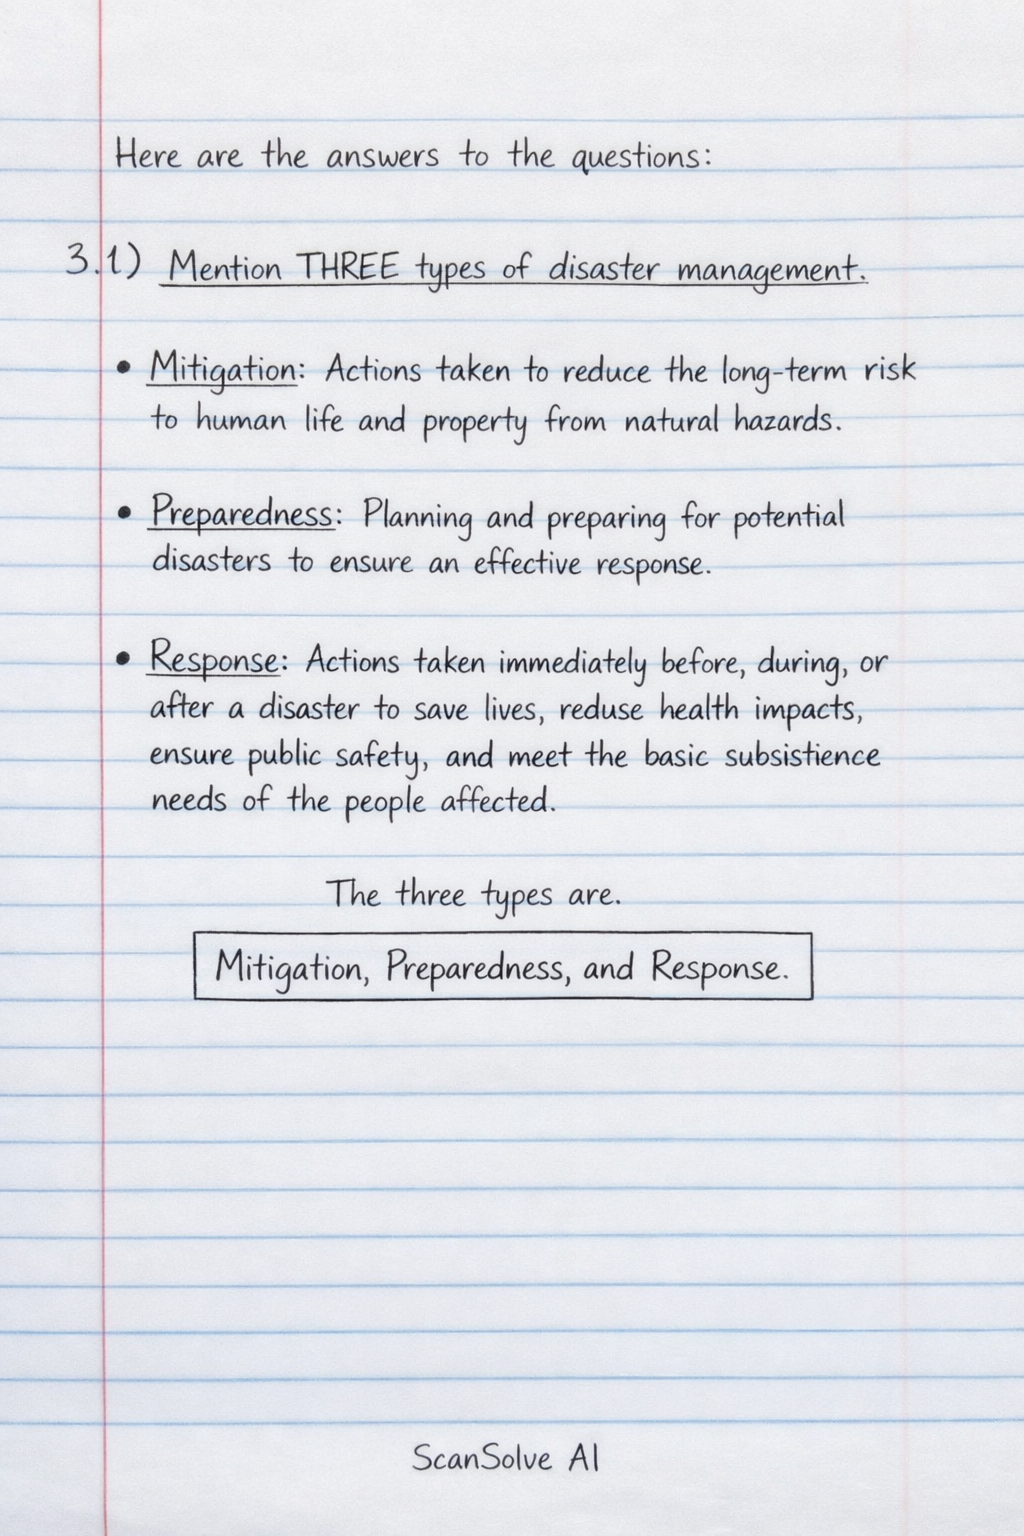 Here are the answers to the questions:
3.1) Mention THREE types of disaster management.
• Mitigation: Actions taken to reduce the long-term risk
to human life and property from natural hazards.
• Preparedness: Planning and preparing for potential
disasters to ensure an effective response.
• Response: Actions taken immediately before, during, or
after a disaster to save lives, reduse health impacts,
ensure public safety, and meet the basic subsistience
needs of the people affected.
The three types are.
Mitigation, Preparedness, and Response.
ScanSolve AI